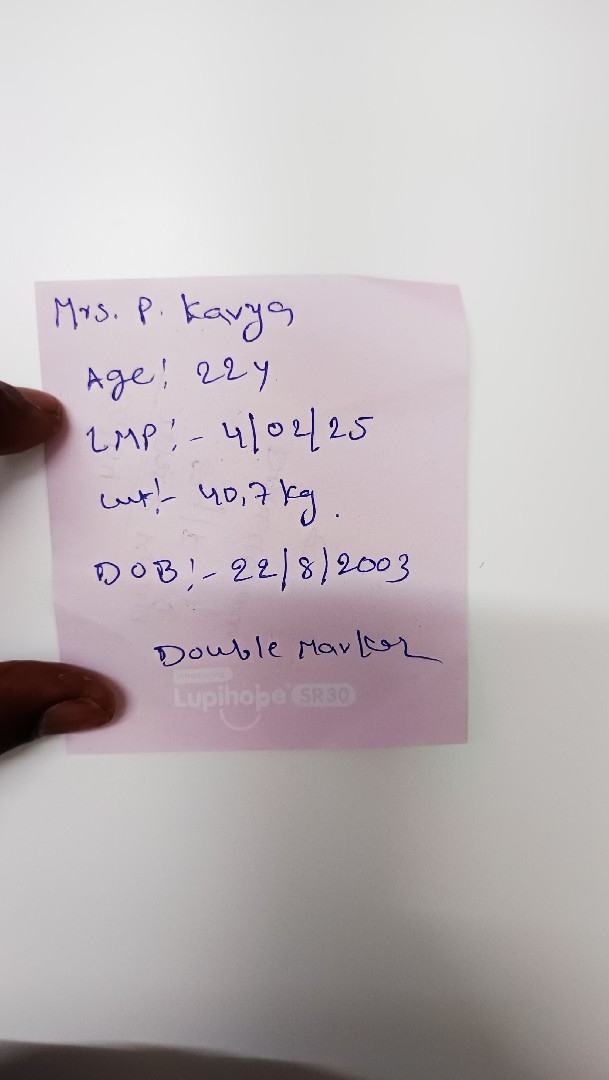 Mrs. P. Kavya
Age: 22y
LMP:- 4/02/25
wt:- 40.7 kg.
DOB:- 22/8/2003
Double Marker
Introducing
Lupihope SR30